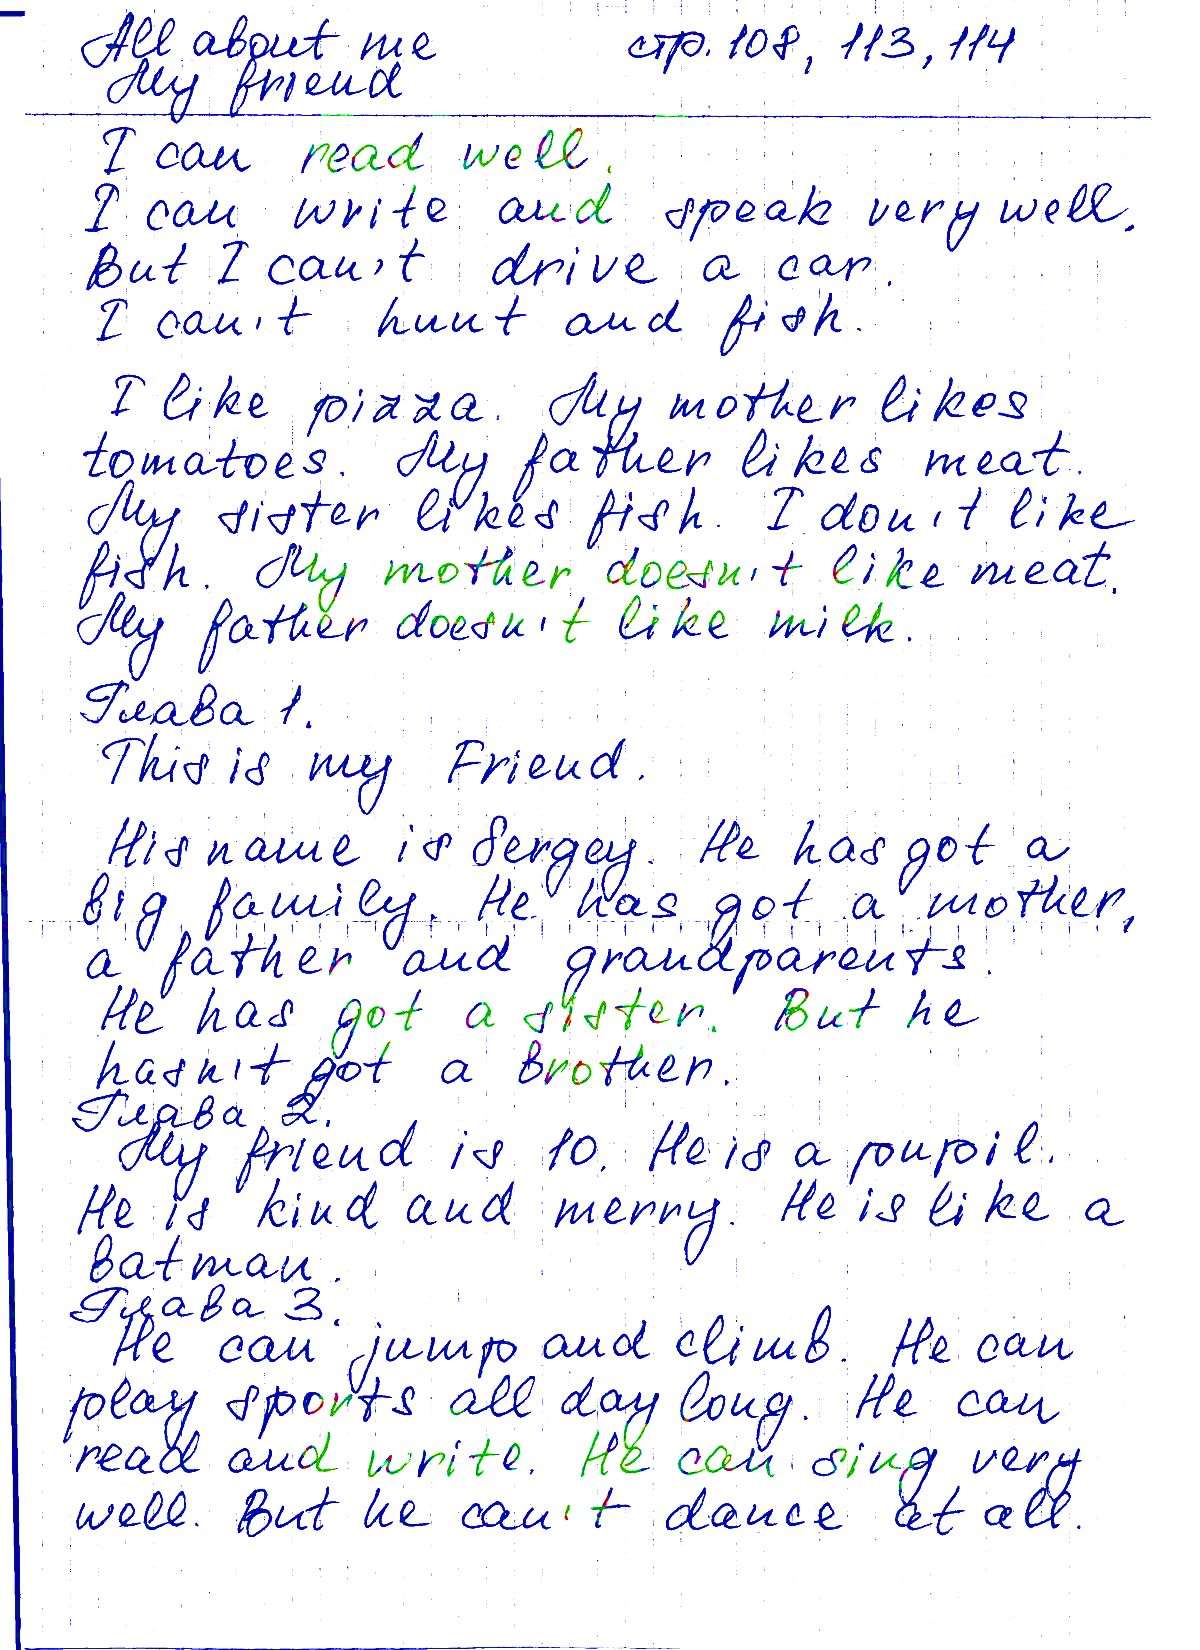 All about me стр. 108, 113, 114
My friend
I can read well.
I can write and speak very well.
But I can't drive a car.
I can't hunt and fish.
I like pizza. My mother likes
tomatoes. My father likes meat.
My sister likes fish. I don't like
fish. My mother doesn't like meat.
My father doesn't like milk.
Глава 1.
This is my Friend.
His name is Sergey. He has got a
big family. He has got a mother,
a father and grandparents.
He has got a sister. But he
hasn't got a brother.
Глава 2.
My friend is 10. He is a pupil.
He is kind and merry. He is like a
batman.
Глава 3.
He can jump and climb. He can
play sports all day long. He can
read and write. He can sing very
well. But he can't dance at all.